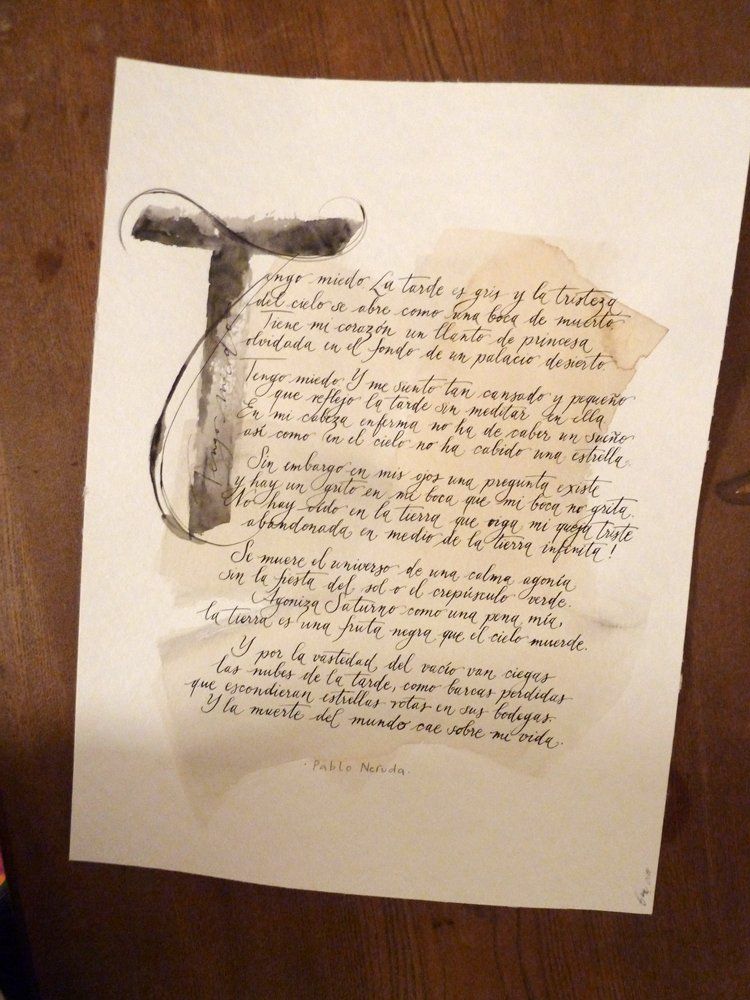 Tengo miedo La tarde es gris y la tristeza
del cielo se abre como una boca de muerto
Tiene mi corazón un llanto de princesa
olvidada en el fondo de un palacio desierto
Tengo miedo Y me siento tan cansado y pequeño
que reflejo la tarde sin meditar en ella
En mi cabeza enferma no ha de caber un sueño
así como en el cielo no ha cabido una estrella.
Sin embargo en mis ojos una pregunta existe
y hay un grito en mi boca que mi boca no grita.
No hay oído en la tierra que oiga mi queja triste
abandonada en medio de la tierra infinita!
Se muere el universo de una calma agonía
sin la fiesta del sol o el crepúsculo verde.
Agoniza Saturno como una pena mía,
la tierra es una fruta negra que el cielo muerde.
Y por la vastedad del vacío van ciegas
las nubes de la tarde, como barcas perdidas
que escondieran estrellas rotas en sus bodegas.
Y la muerte del mundo cae sobre mi vida.
· Pablo Neruda.
Tengo miedo